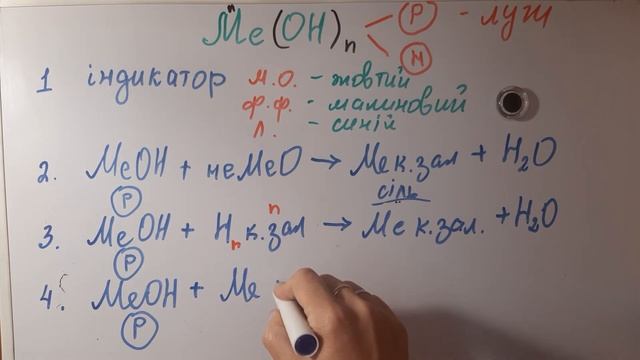 Me(OH)n Р - луги
n
Н
1 індикатор м.о. - жовтий
ф.ф. - малиновий
л. - синій
2. MeOH + неMeO → Me к.зал + H2O
Р
сіль
3. MeOH + Hn к.зал n → Me к.зал. + H2O
Р
4. MeOH + Me
Р